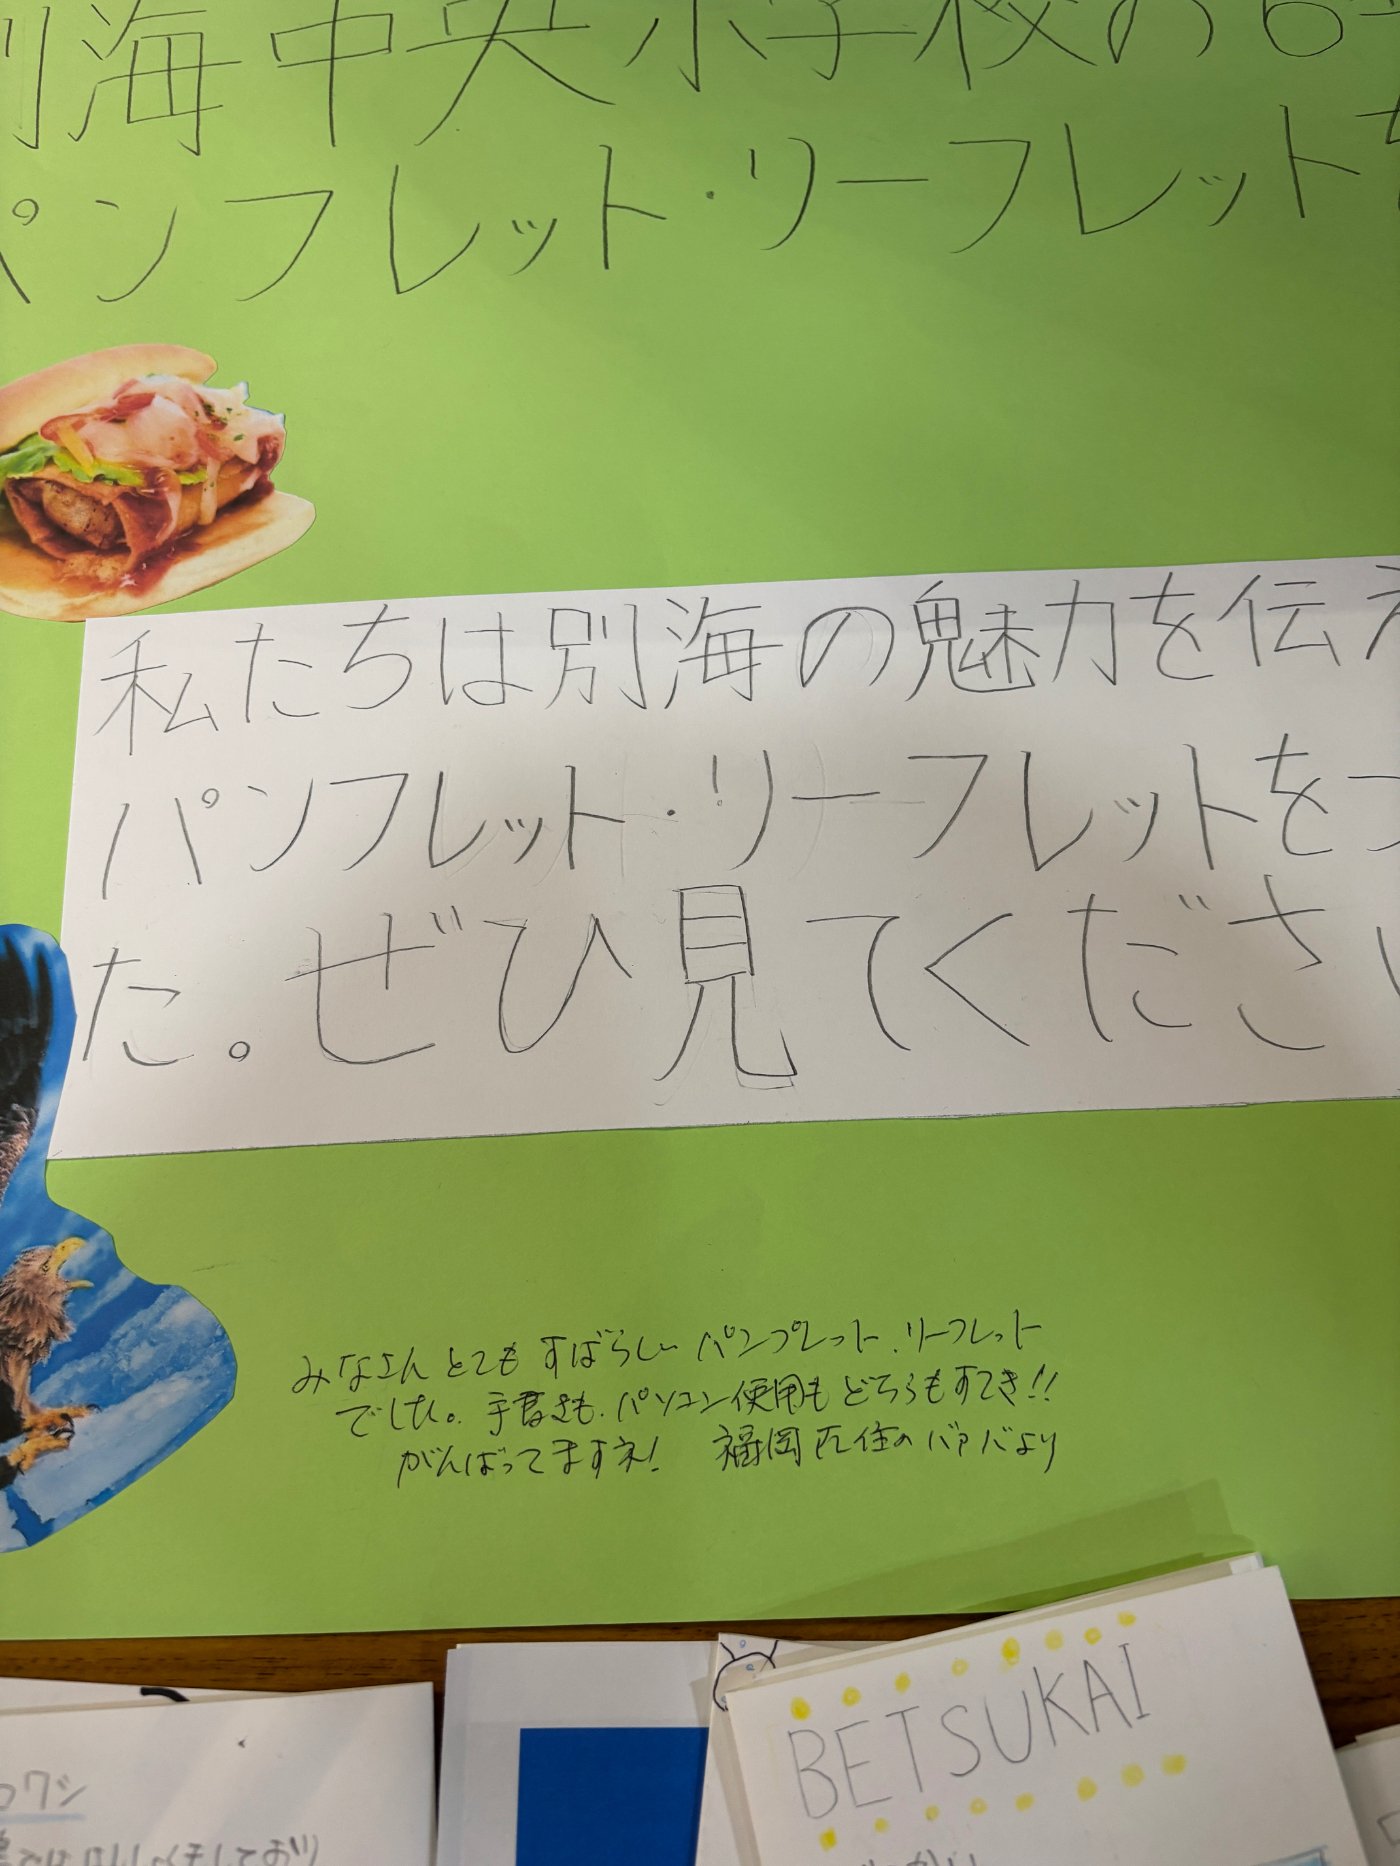 別海中央小学校の6年
パンフレット・リーフレットを
私たちは別海の魅力を伝え
パンフレット・リーフレットをつ
た。ぜひ見てください
みなさんとてもすばらしいパンプレット、リーフレット
でした。手書きも、パソコン使用もどちらもすてき!!
がんばってますネ! 福岡在住のババより
ロワシ
BETSUKAI